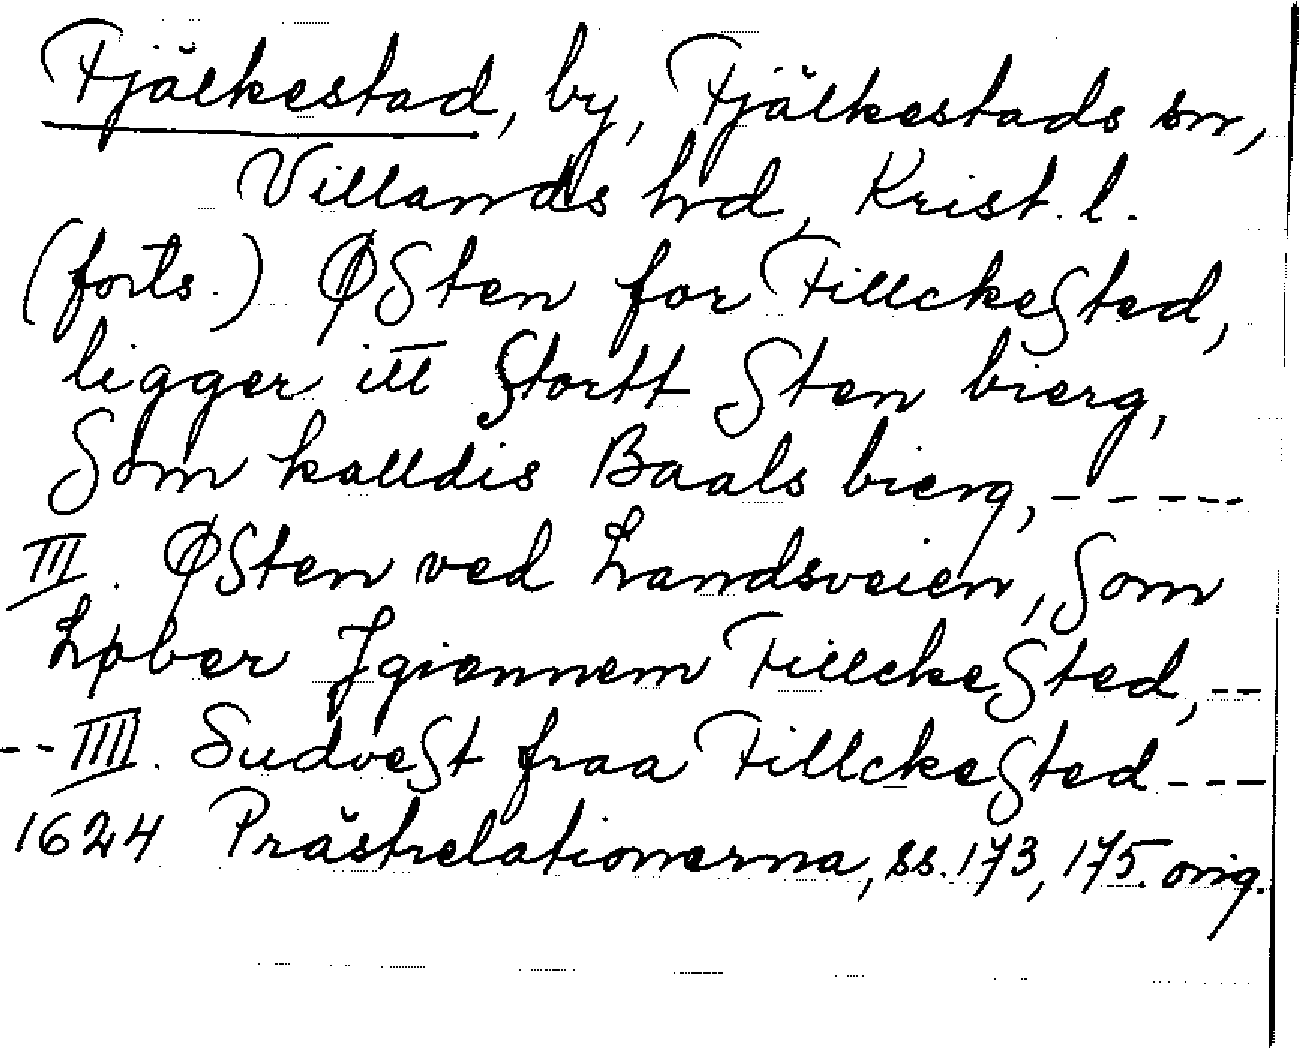 Fjälkestad, by, Fjälkestads sn,
Villands hd, Krist. l.
(forts.) ØSten for FillckeSted,
ligger itt Stortt Sten bierg,
Som kalldis Baals bierg, - - - - -
III. ØSten ved Landsveien, Som
Løber Igiennem FillckeSted, - -
- - IIII. SudveSt fraa FillckeSted - - -
1624 Prästrelationerna, ss. 173, 175. orig.